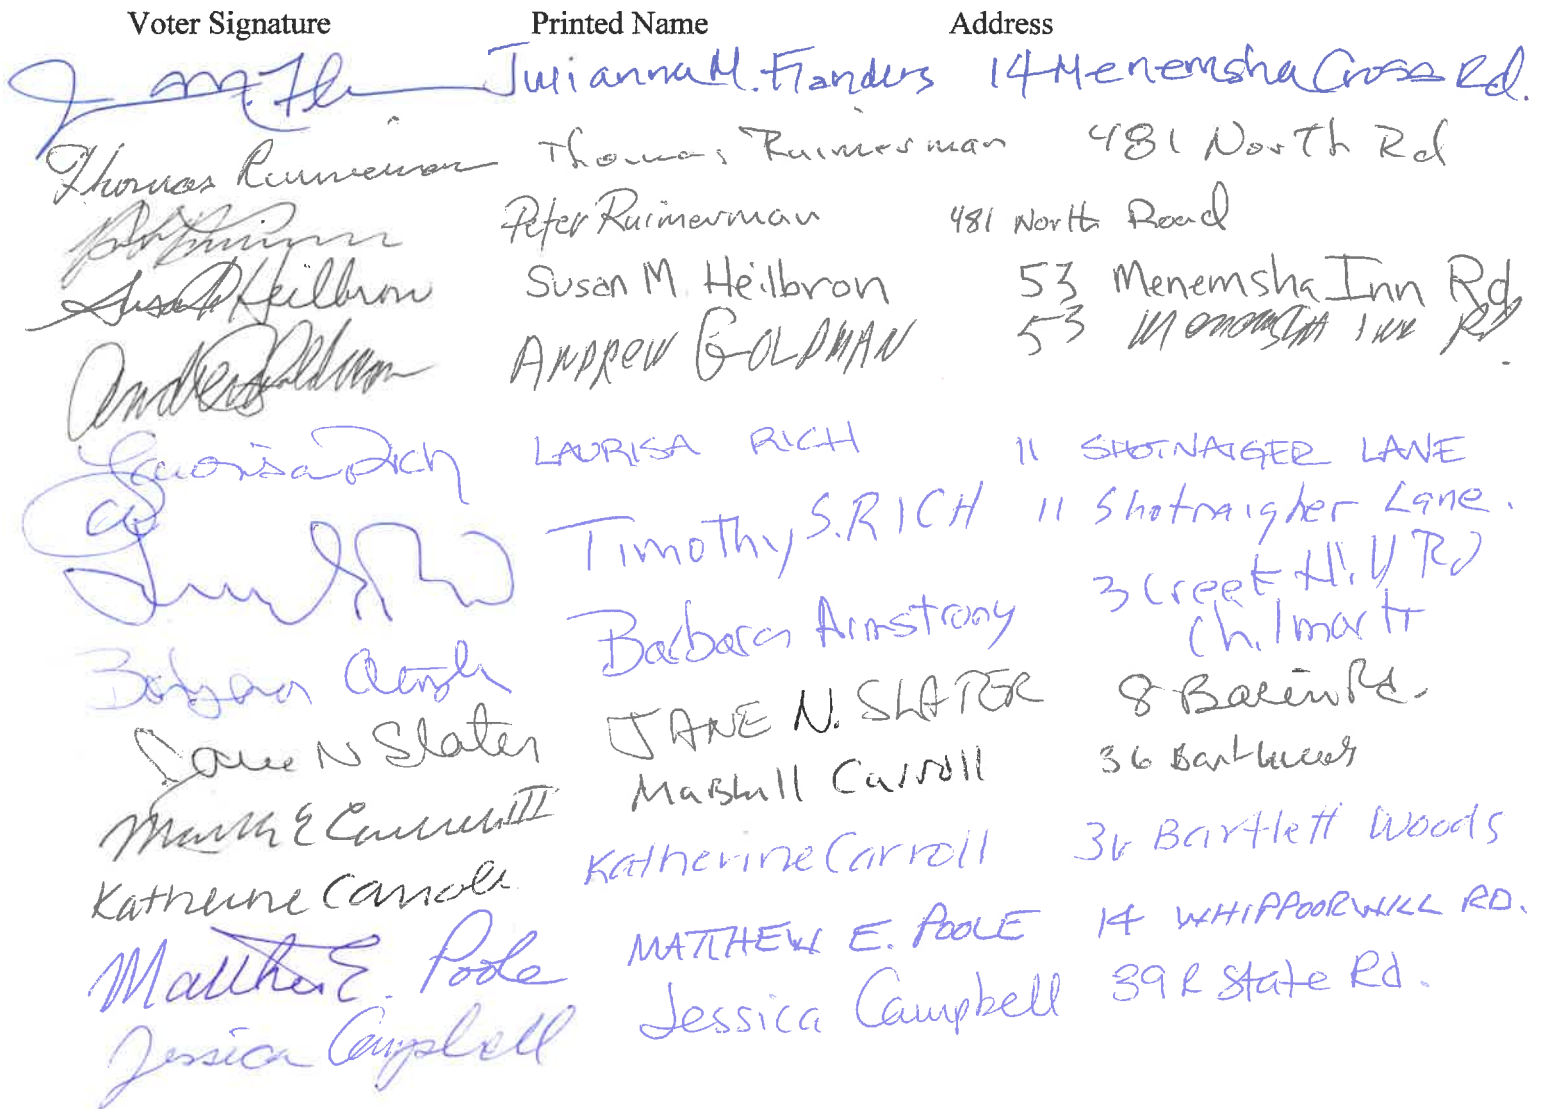 Voter Signature Printed Name Address
Julianna M. Flanders 14 Menemsha Cross Rd.
Thomas Ruimerman Thomas Ruimerman 481 North Rd
Peter Ruimerman 481 North Road
Susan Heilbron Susan M. Heilbron 53 Menemsha Inn Rd
Andrew Goldman ANDREW GOLDMAN 53 Menemsha Inn Rd.
Laurisa Rich LAURISA RICH 11 SHOTNAIGER LANE
Timothy S. RICH 11 Shotnaigher Lane.
Barbara Armstrong 3 Creek Hill Rd
Chilmark
Jane N Slater JANE N. SLATER 8 Basin Rd.
Marshall Carroll 36
Katherine Carroll Katherine Carroll 36 Bartlett Woods
Matthew E. Poole MATTHEW E. POOLE 14 WHIPPOORWILL RD.
Jessica Campbell Jessica Campbell 39R State Rd.